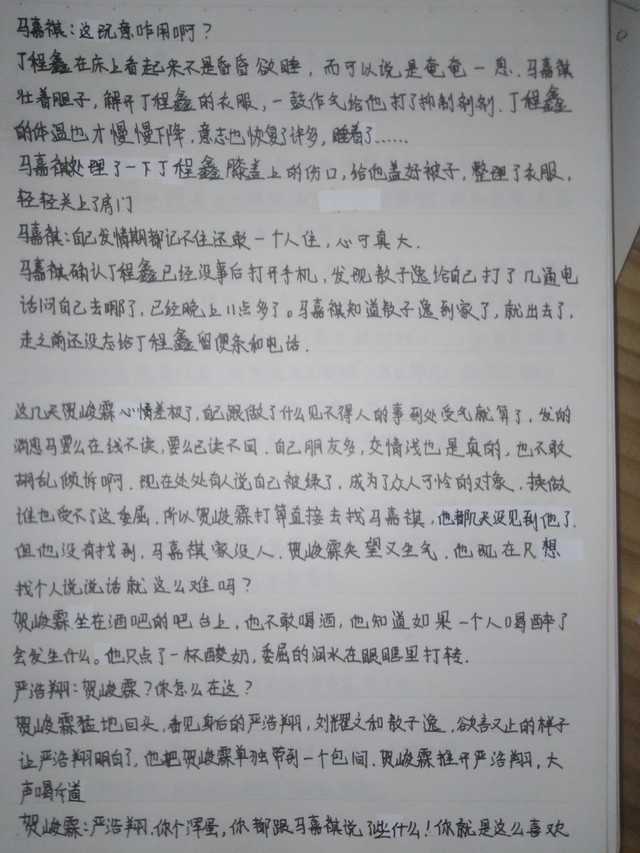 马嘉祺:这玩意咋用啊?
丁程鑫在床上看起来不是昏昏欲睡,而可以说是奄奄一息.马嘉祺
壮着胆子,解开丁程鑫的衣服,一鼓作气给他打了抑制剂.丁程鑫
的体温也才慢慢下降,意志也恢复了许多,睡着了……
马嘉祺处理了一下丁程鑫膝盖上的伤口,给他盖好被子,整理了衣服,
轻轻关上了房门
马嘉祺:自己发情期都记不住还敢一个人住,心可真大.
马嘉祺确认丁程鑫已经没事后打开手机,发现敖子逸给自己打了几通电
话问自己去哪了,已经晚上11点多了。马嘉祺知道敖子逸到家了,就出去了,
走之前还没忘给丁程鑫留便条和电话.
这几天贺峻霖心情差极了,自己跟做了什么见不得人的事到处受气就算了,发的
消息马要么在线不读,要么已读不回.自己朋友多,交情浅也是真的,也不敢
胡乱倾诉啊.现在处处有人说自己被绿了,成为了众人可怜的对象,换做
谁也受不了这委屈.所以贺峻霖打算直接去找马嘉祺,他都几天没见到他了.
但他没有找到,马嘉祺家没人.贺峻霖失望又生气,他现在只想
找个人说说话就这么难吗?
贺峻霖坐在酒吧的吧台上,他不敢喝酒,他知道如果一个人喝醉了
会发生什么。他只点了一杯酸奶,委屈的泪水在眼眶里打转.
严浩翔:贺峻霖?你怎么在这?
贺峻霖猛地回头,看见身后的严浩翔,刘耀文和敖子逸,欲言又止的样子
让严浩翔明白了,他把贺峻霖单独带到一个包间.贺峻霖推开严浩翔,大
声喝斥道
贺峻霖:严浩翔,你个浑蛋,你都跟马嘉祺说了些什么!你就是这么喜欢